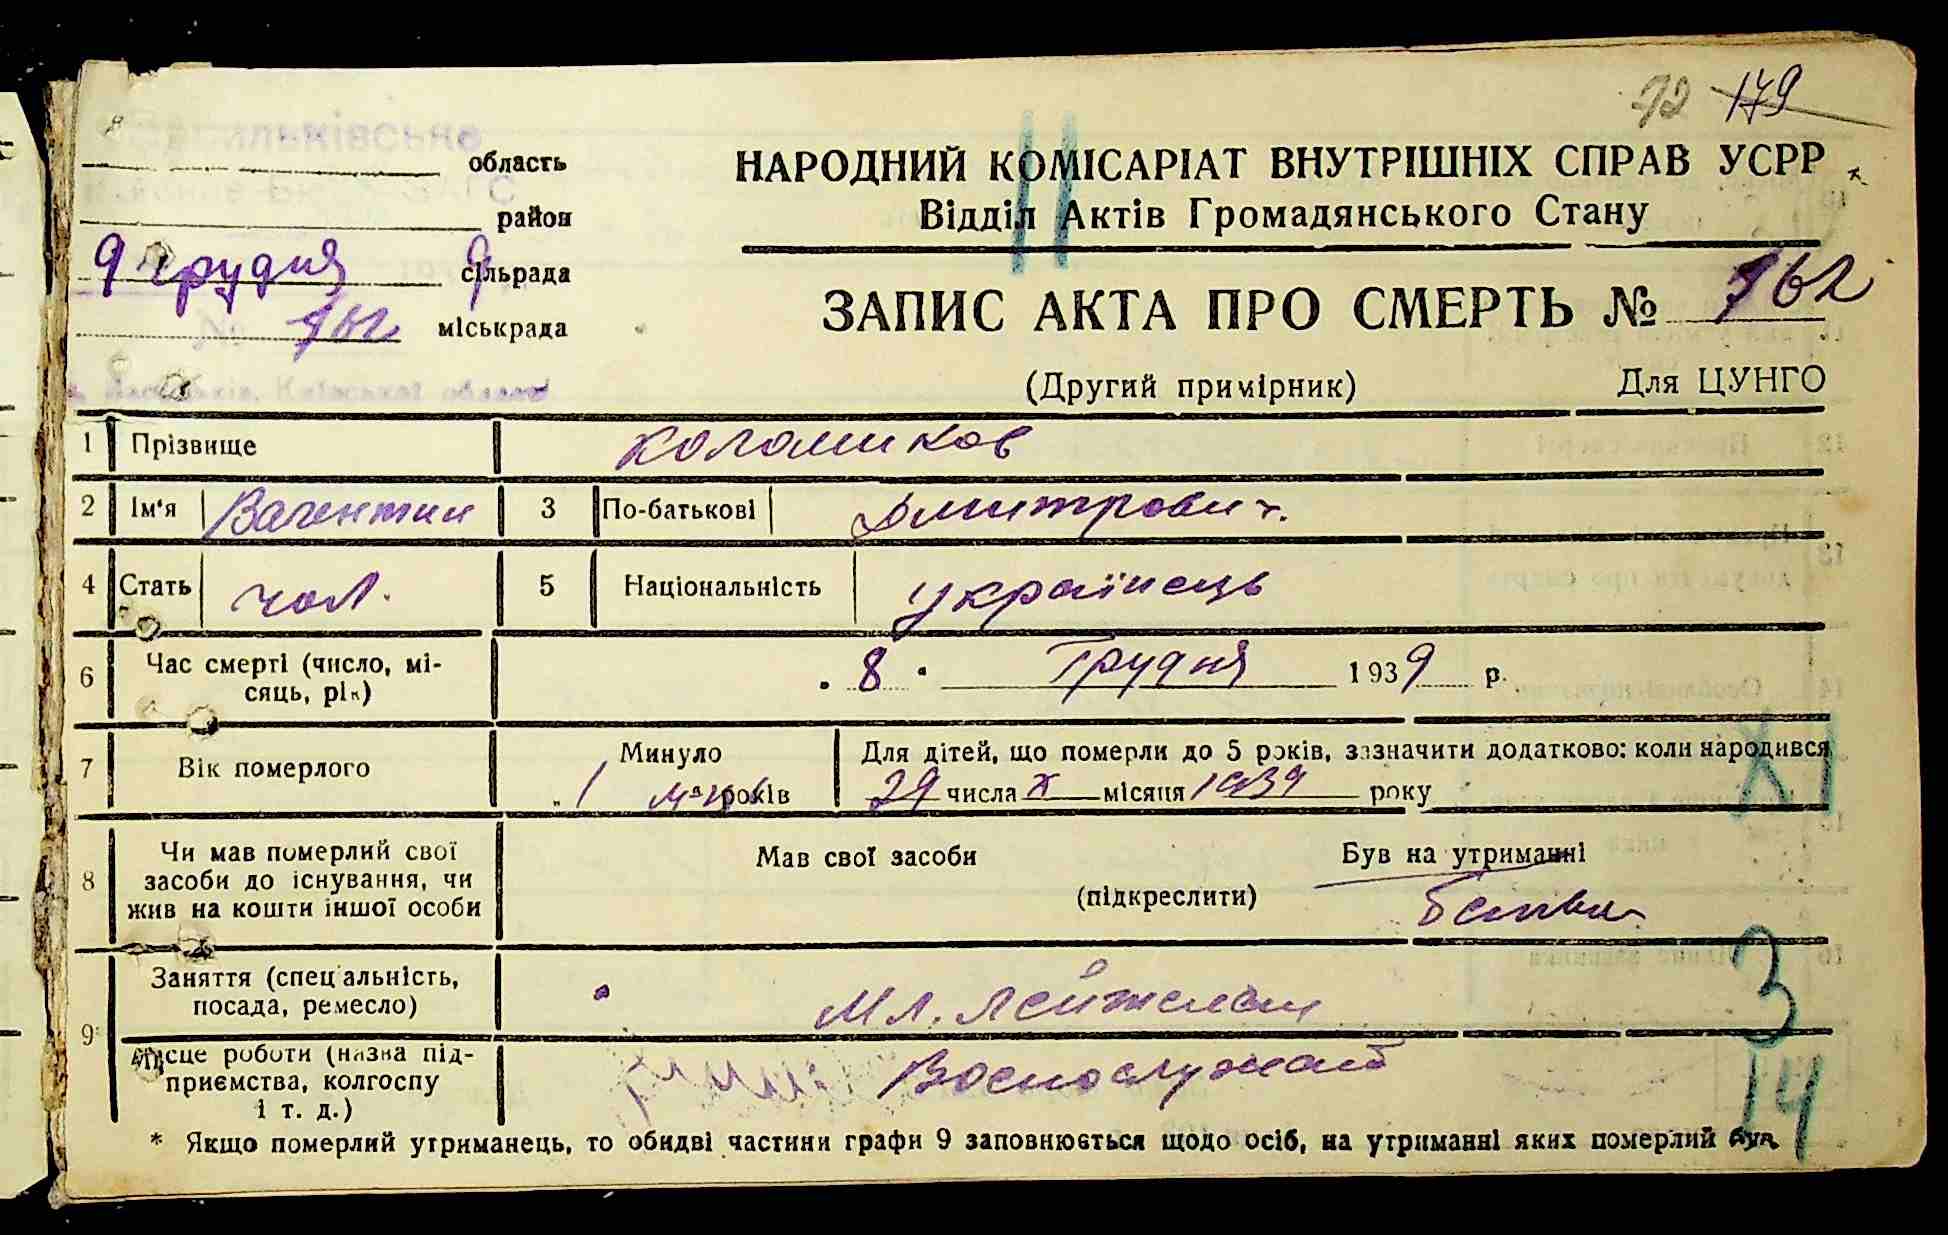 92 179
Васильківське
область
НАРОДНИЙ КОМІСАРІАТ ВНУТРІШНІХ СПРАВ УСРР
район
Відділ Актів Громадянського Стану
9 грудня 9 сільрада
ЗАПИС АКТА ПРО СМЕРТЬ № 962
№ 962 міськрада
(Другий примірник) Для ЦУНГО
Київської області
1 Прізвище Коломиков
2 Ім'я Валентин 3 По-батькові Дмитрович.
4 Стать чол. 5 Національність українець
6 Час смерті (число, мі-
сяць, рік) 8 Грудня 1939 р.
7 Вік померлого Минуло 1 м-ць років
Для дітей, що померли до 5 років, зазначити додатково: коли народився
29 числа X місяця 1939 року
XI
8 Чи мав померлий свої
засоби до існування, чи
жив на кошти іншої особи
Мав свої засоби Був на утриманні
(підкреслити)
3
9* Заняття (спеціальність,
посада, ремесло)
Мл. Лейтенант
Місце роботи (назва під-
приємства, колгоспу
і т. д.)
Воєнослужащ
14
* Якщо померлий утриманець, то обидві частини графи 9 заповнюється щодо осіб, на утриманні яких померлий був